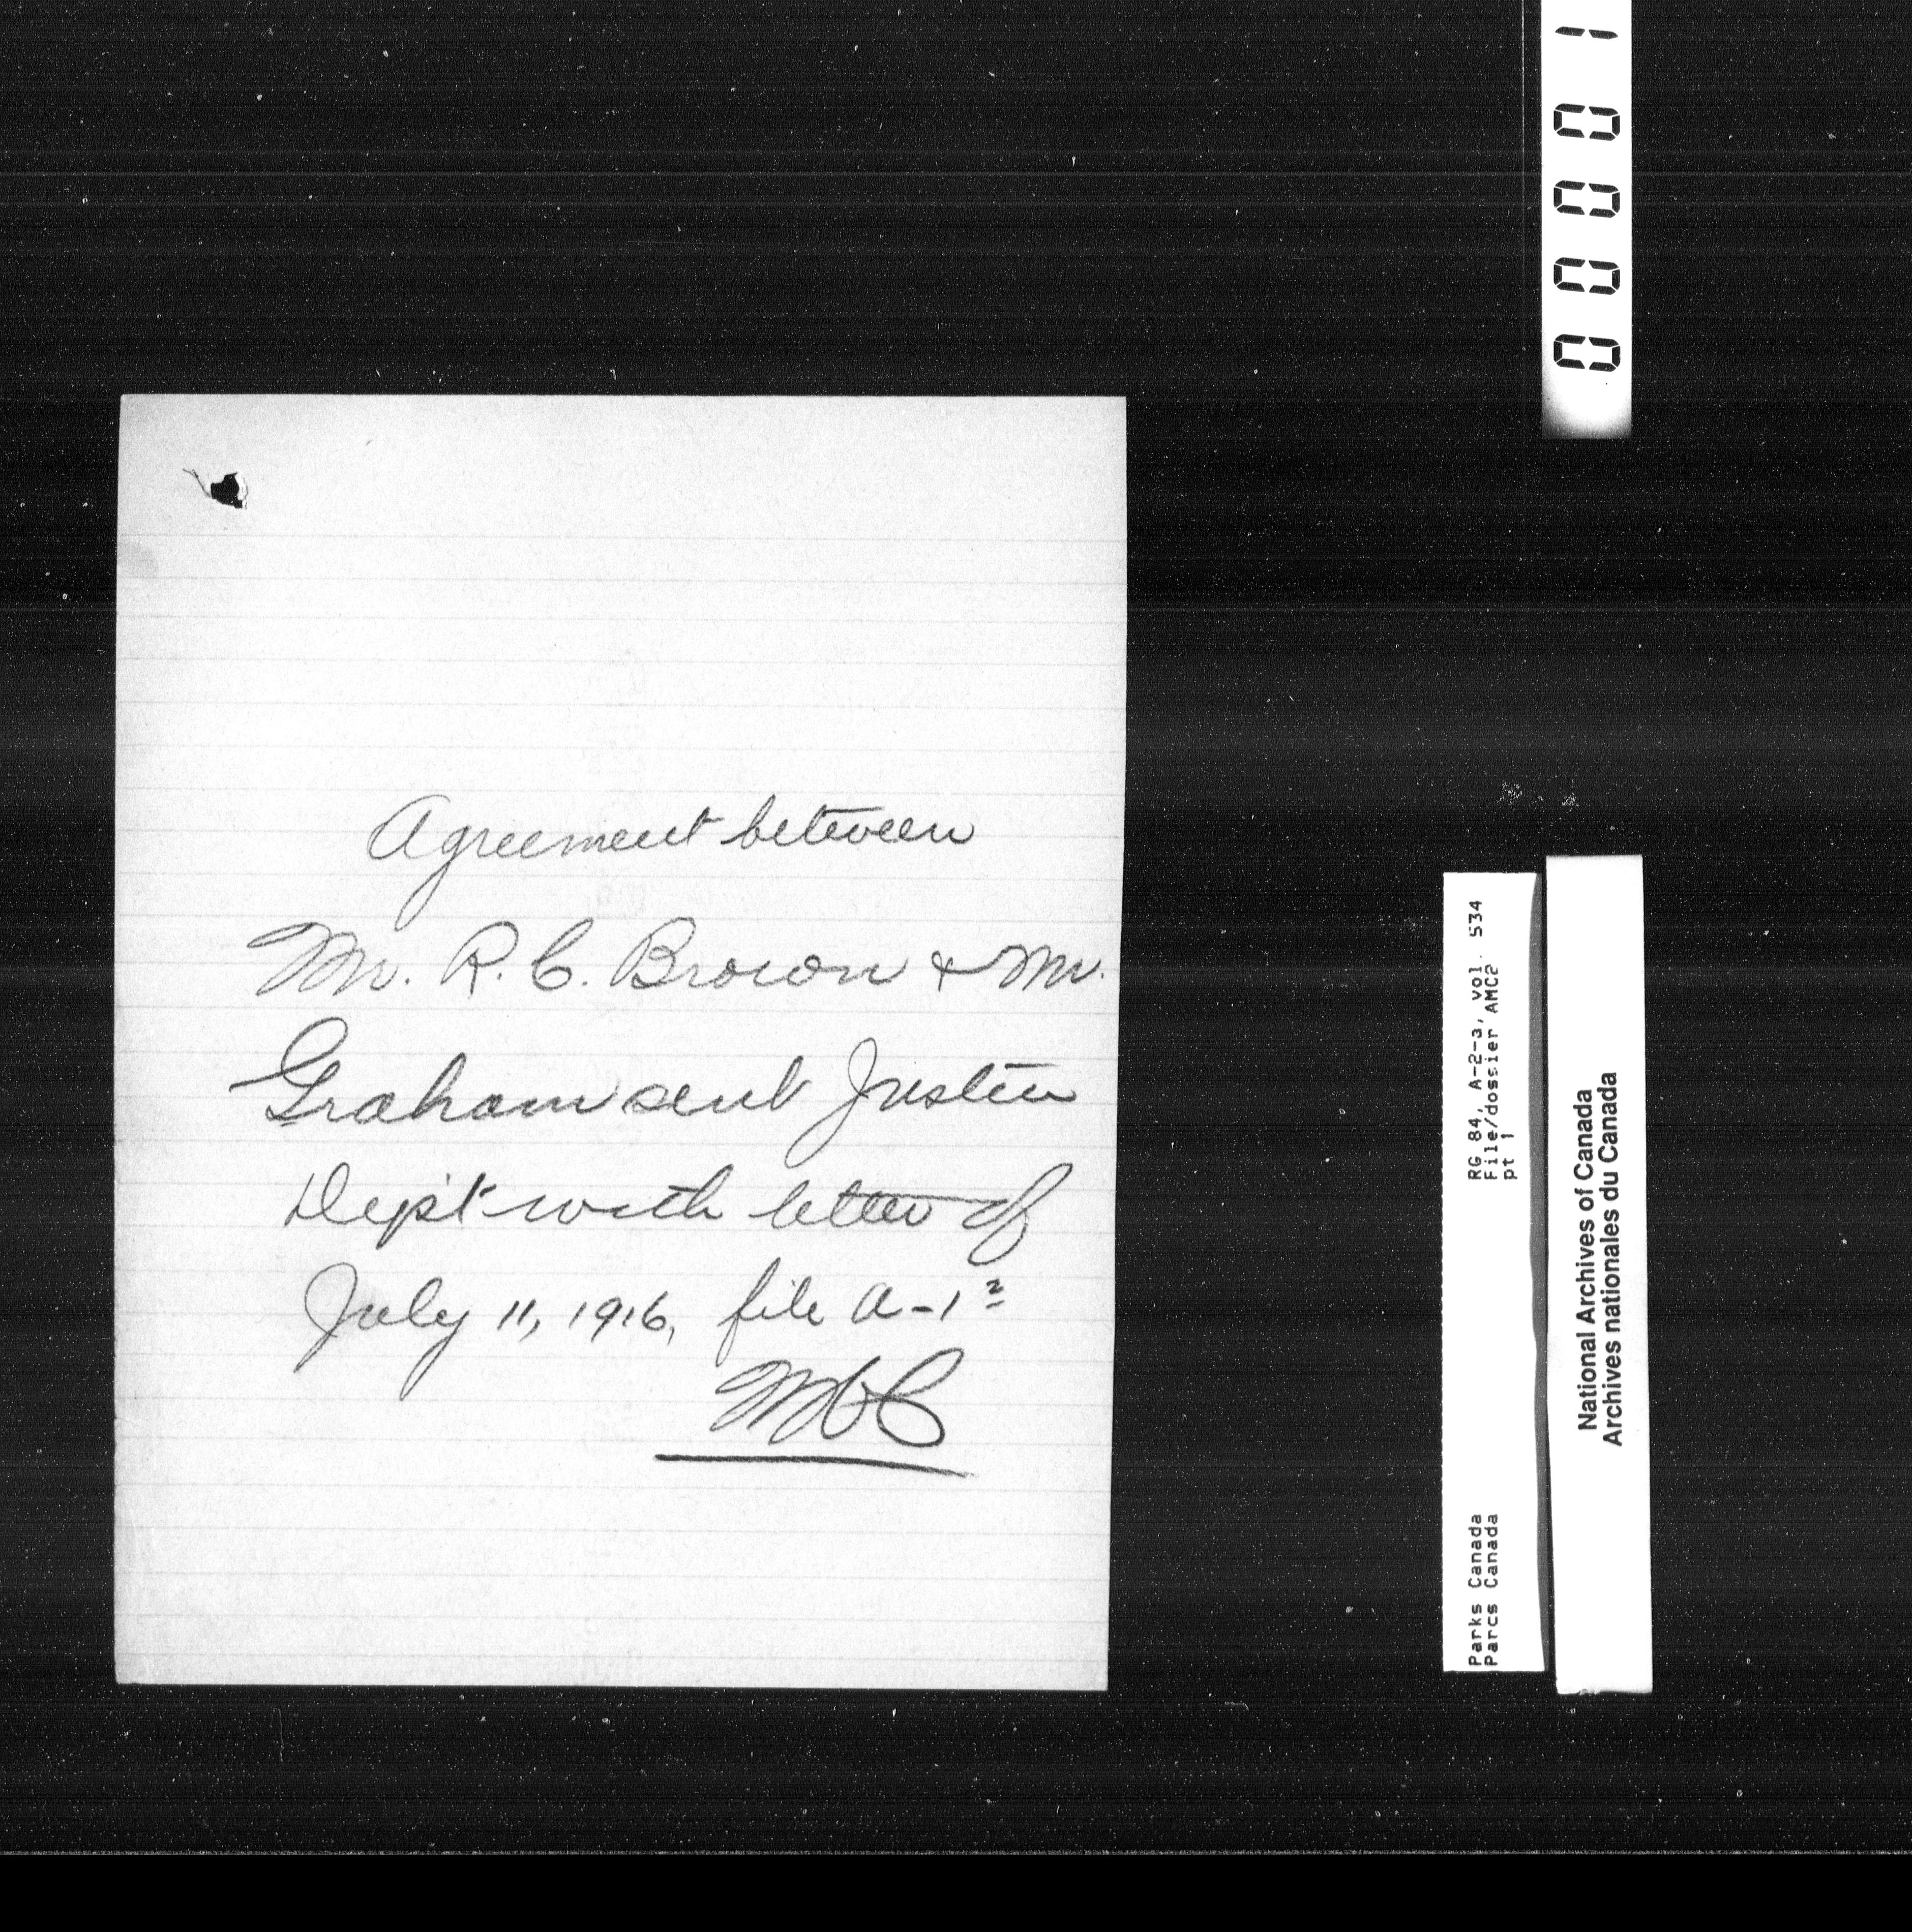 Agreement between
Mr. R. C. Brown & Mr.
Graham sent Justice
Dep't with letter of
July 11, 1916, file A-1²
00001
RG 84, A-2-a, vol. 534
File/dossier AMC2
pt 1
Parks Canada
Parcs Canada
National Archives of Canada
Archives nationales du Canada